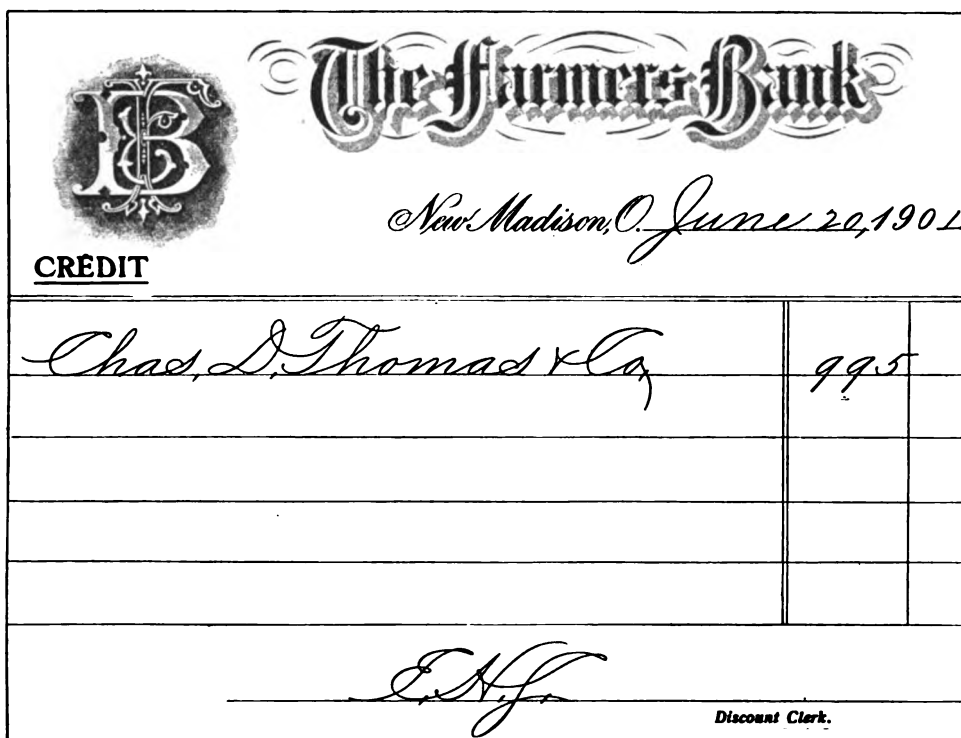 The Farmers Bank
New Madison, O. June 20, 1901
CREDIT
Chas. D. Thomas & Co, 995
E.H.J.
Discount Clerk.